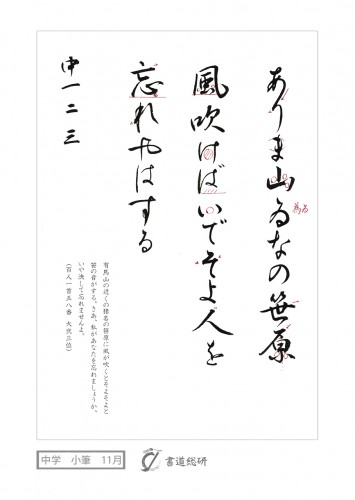 ありま山ゐなの笹原
為 為
風吹けばいでそよ人を
忘れやはする
中一二三
有馬山の近くの猪名の笹原に風が吹くとそよそよと
笹の音がする。さあ、私があなたを忘れましょうか、
いや決して忘れませんよ。
(百人一首五八番 大弐三位)
中学 小筆 11月
書道総研